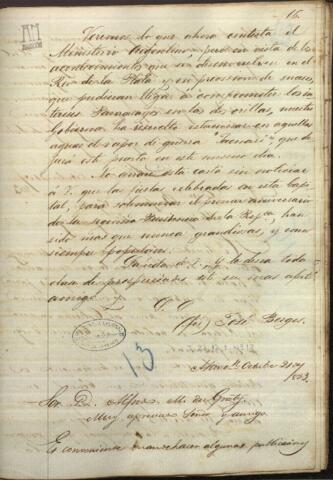 16.
Veremos lo que ahora contesta el
Ministerio Argentino, pero en vista de los
acontecimientos que se desenvuelven en el
Rio de la Plata y en prevision de sucesos
que pudieran llegar a comprometer los in-
tereses Paraguayos en las dos orillas, nuestro
Gobierno ha resuelto estacionar en aquellas
aguas el vapor de guerra "Tacuari", que de
jará este puerto en este mismo dia.
No cerraré esta carta sin noticiar
á V. que las fiestas celebradas en esta capi
tal, para solemnizar el primer aniversario
de la segunda Presidencia de la Repca, han
sido mas que nunca grandiosas, y como
siempre populares.
Saluda á V. y le desea toda
clase de prosperidades su mas afto
amigo
(fdo) José Berges.
13
Octubre 21
Sor D. Alfredo M. du Graty.
Muy apreciado Señor y amigo.
Es conveniente mandar hacer algunas publicaciones